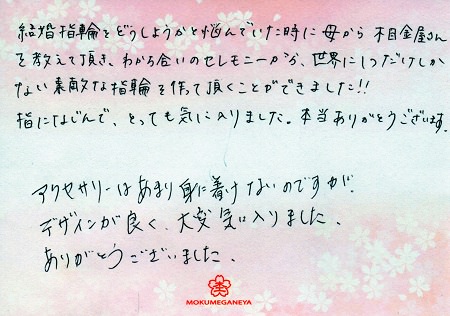 結婚指輪をどうしようかと悩んでいた時に母から杢目金屋さん
を教えて頂き、わかち合いのセレモニーから、世界に1つだけしか
ない素敵な指輪を作って頂くことができました!!
指になじんで、とっても気に入りました。本当ありがとうございます。
アクセサリーはあまり身に着けないのですが、
デザインが良く、大変気に入りました。
ありがとうございました。
MOKUMEGANEYA